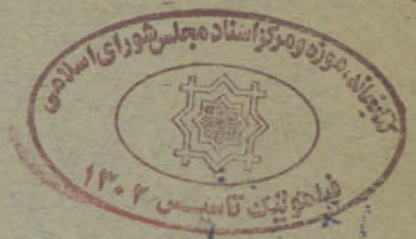 کتابخانه، موزه و مرکز اسناد مجلس شورای اسلامی
تاسیس ۱۳۰۲